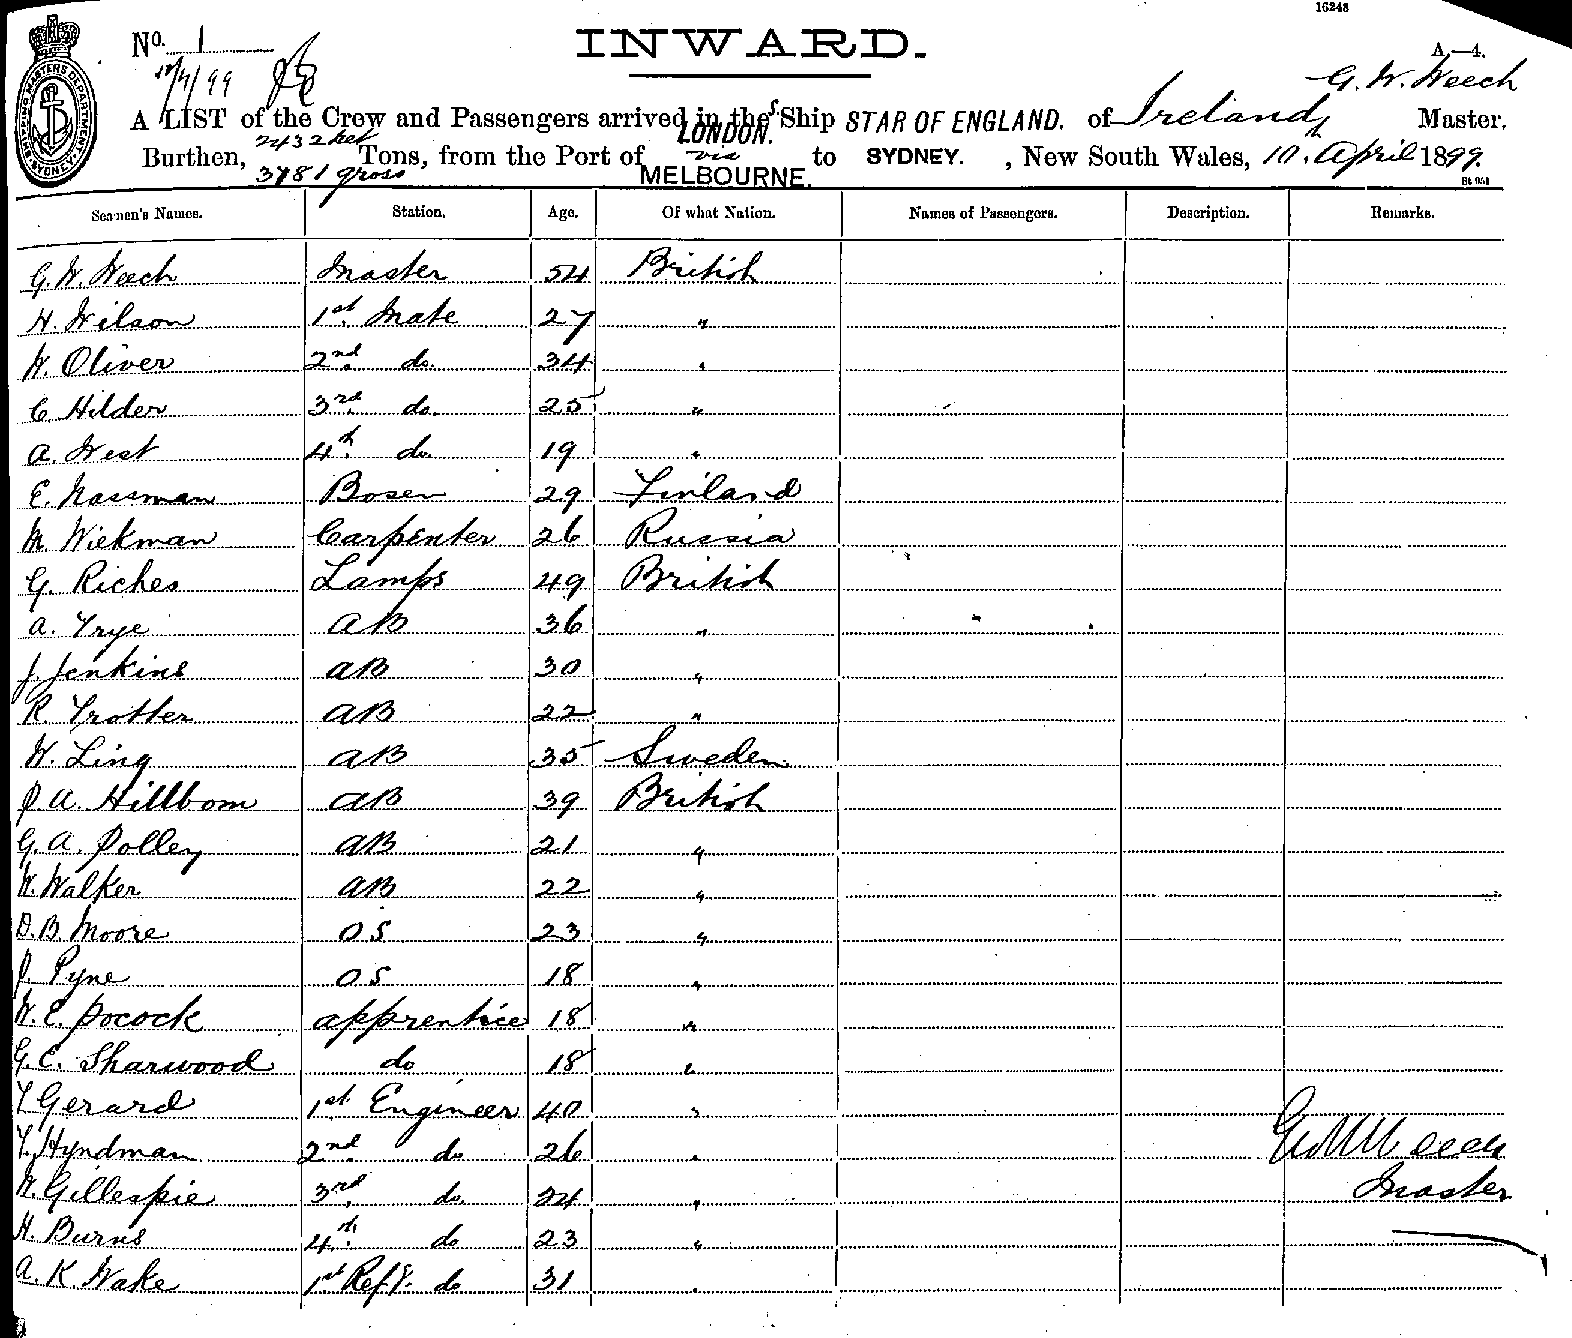 16248
No. 1
INWARD.
A.—4.
12/4/99
G. W. Weech
A LIST of the Crew and Passengers arrived in the SS Ship STAR OF ENGLAND. of Ireland, Master,
Burthen, 2432 net 3781 gross Tons, from the Port of LONDON. via MELBOURNE. to SYDNEY., New South Wales, 10. April 1899.
SHIPPING MASTERS DEPARTMENT SYDNEY
Seamen's Names. Station. Age. Of what Nation. Names of Passengers. Description. Remarks.
G. W. Weech Master 54 British
H. Wilson 1st. Mate 27 "
W. Oliver 2nd. do. 34 "
C. Hilder 3rd. do. 25 "
A. West 4th. do. 19 "
E. Nassman Bosen 29 Finland
M. Wickman Carpenter 26 Russia
G. Riches Lamps 49 British
A. Frye AB 36 "
J. Jenkins AB 30 "
R. Trotter AB 22 "
W. Ling AB 35 Sweden
P. A. Hillbom AB 39 British
G. A. Polley AB 21 "
W. Walker AB 22 "
D. B. Moore OS 23 "
J. Pyne OS 18 "
W. E. Pocock apprentice 18 "
G. C. Sharwood do 18 "
T Gerard 1st. Engineer 40 "
T. Hyndman 2nd. do 26 "
W. Gillespie 3rd. do. 24 "
Master
H. Burns 4th. do 23 "
A. K. Wake 1st Refg. do 31 "